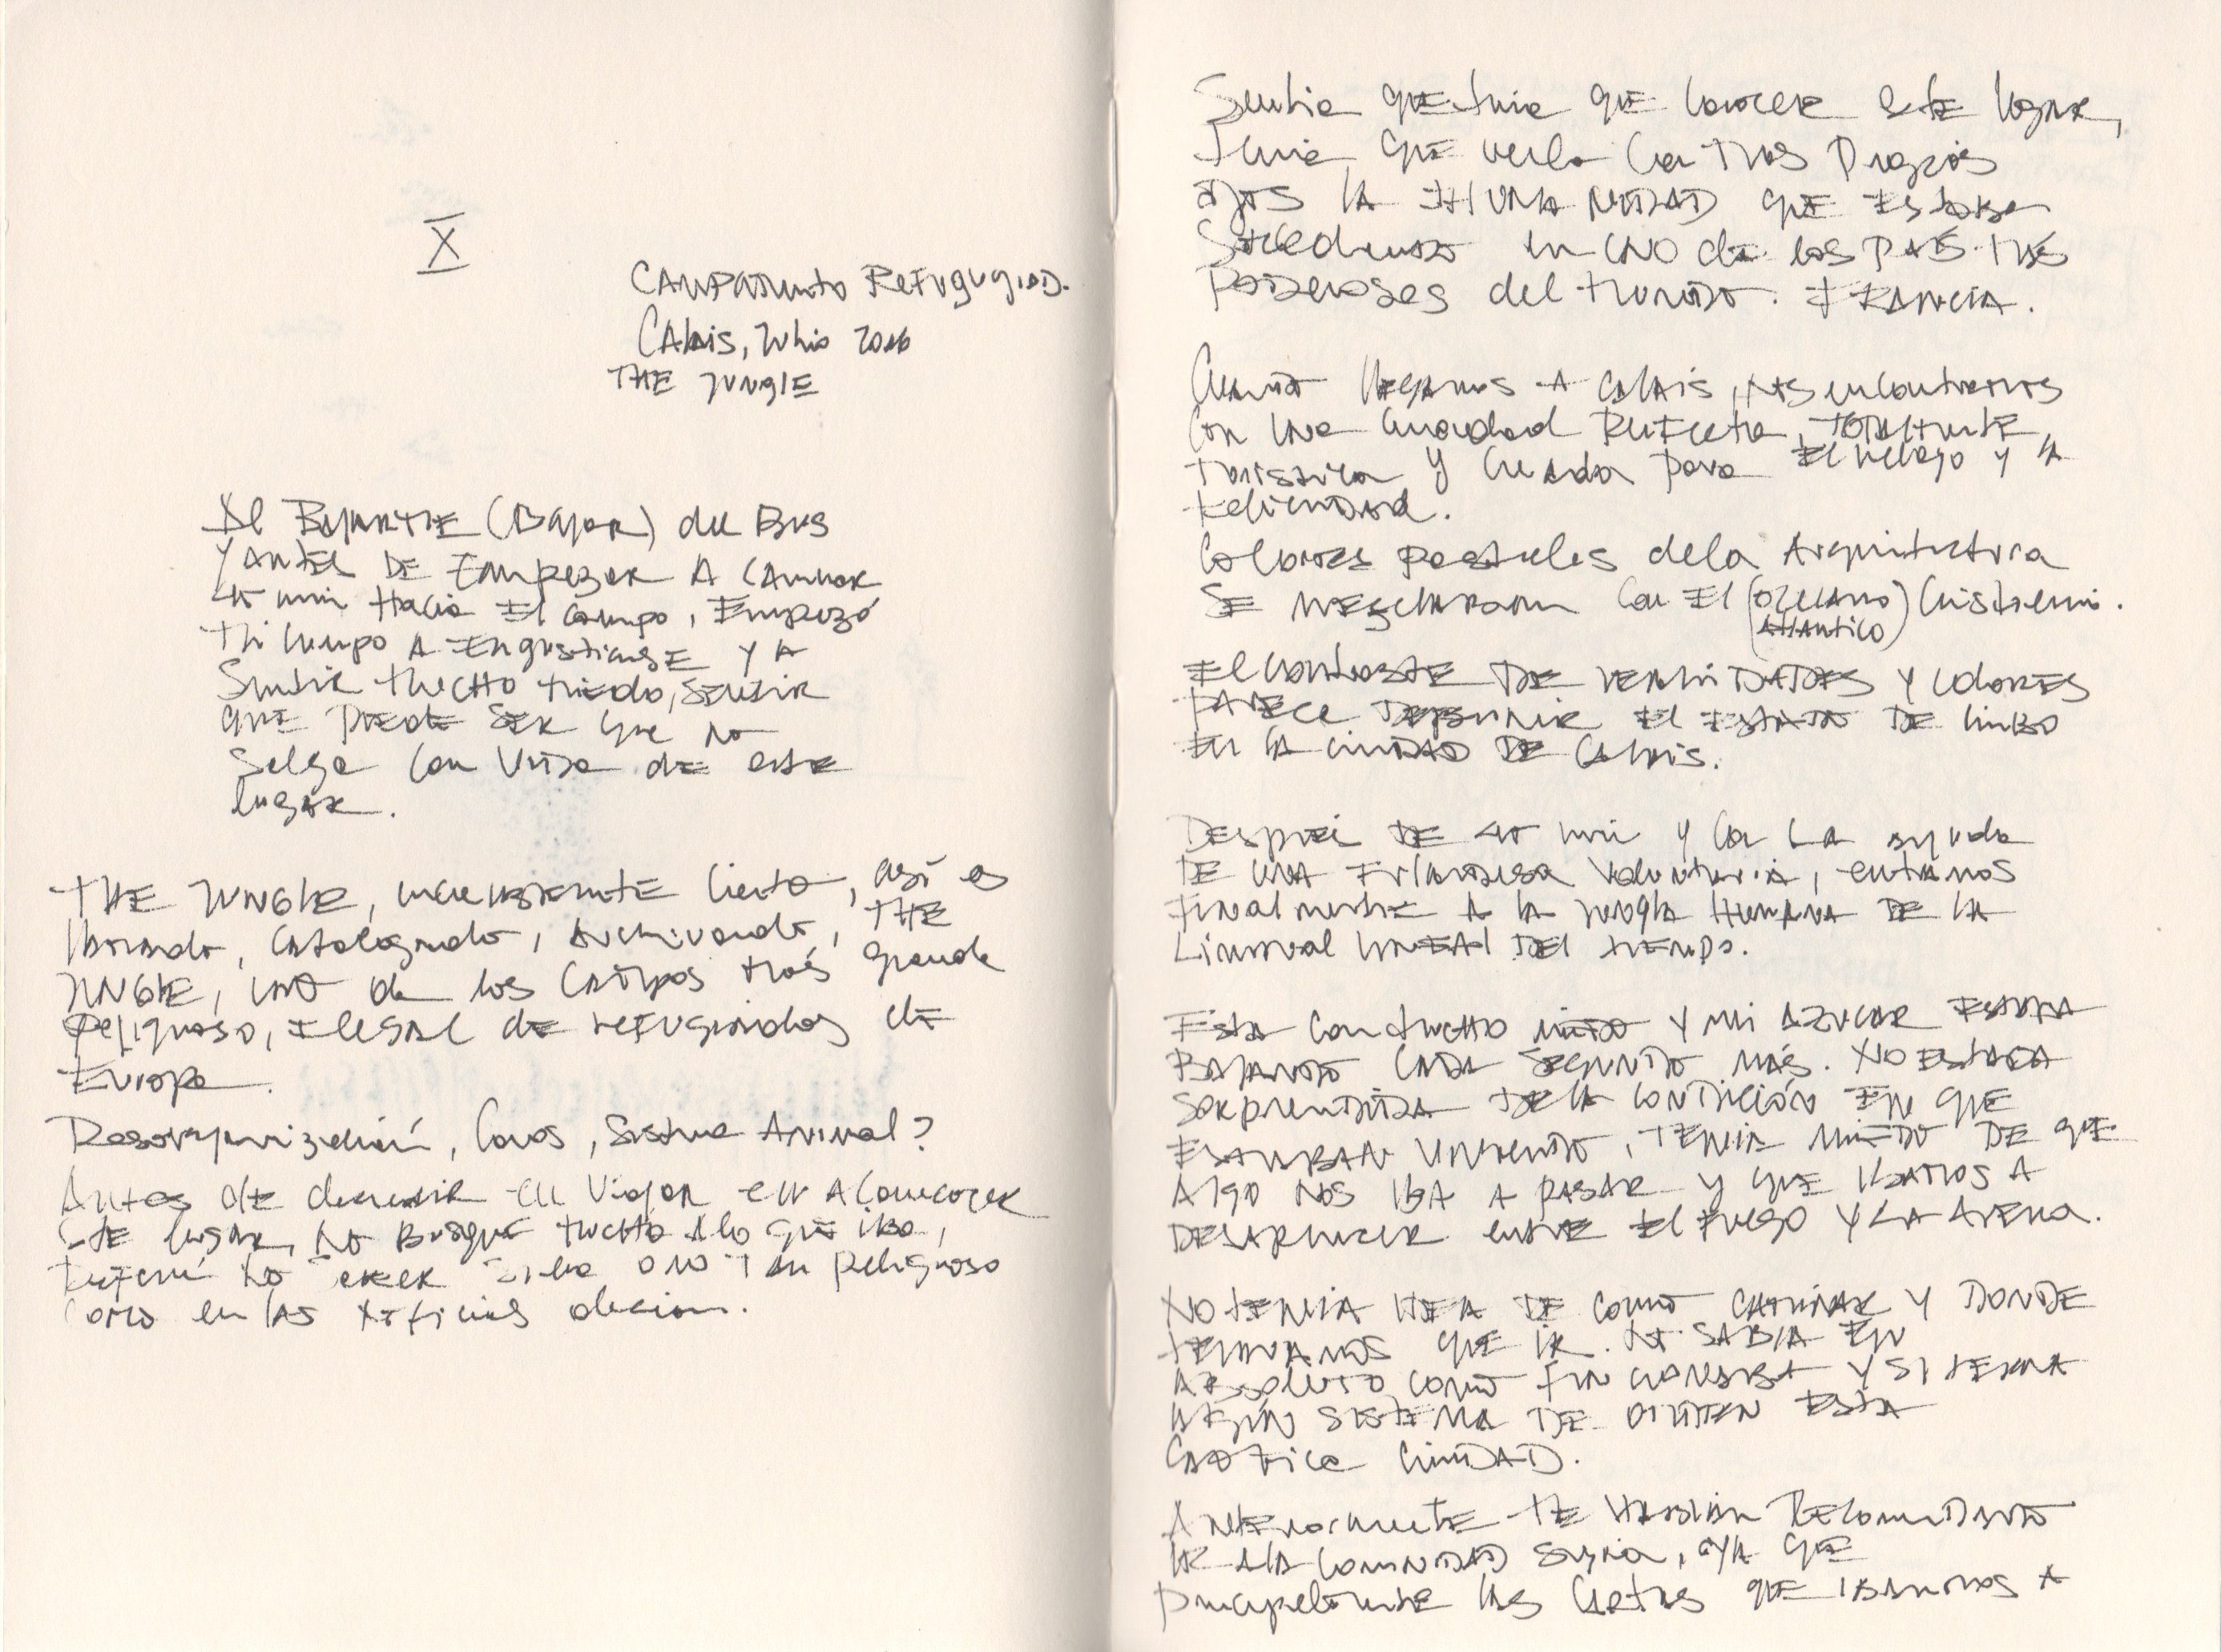 X
CAMPAMENTO REFUGUGIAD.
CALAIS, Julio 2016
THE JUNGLE
Al BAJARME (BAJAR) del BUS
Y ANTES DE EMPEZAR A CAMINAR
45 min HACIA El campo, EMPEZÓ
Mi cuerpo A ENgustiarse Y A
Sentir MUCHO MIEDO, SENTIR
QUE PUEDE SER que no
Salga con VIDA de este
lugar.
THE JUNGLE, cierto, así es
llamado, catalogado, archivado, THE
JUNGLE, UNO de los CAMPOS más grande
peligroso, ILEGAL de refugiados de
Europa.
Desorganización, Caos, Sistema Animal?
Antes de decidir en viajar en A conocer
este lugar, NO BUSQUÉ MUCHO A lo que iba,
Preferí NO o no tan peligroso
como en las noticias decian.
Sentia que tenia que conocer este lugar,
Tenia que verlo con mis propios
OJOS LA INHUMANIDAD QUE ESTABA
Sucediendo en UNO de los PAIS MÁS
PODEROSOS del MUNDO. FRANCIA.
Cuando llegamos A CALAIS, NOS encontramos
Con una ciudad PERFECTA, TOTALMENTE
turistica Y creada para El relajo y la
felicidad.
Colores pasteles dela Arquitectura
SE MESCLABAN con El (OCEANO) Cristalino.
(ATLANTICO)
El contraste DE REALIDADES Y COLORES
PARECE DEFINIR El ESTADO DE LIMBO
EN LA CIUDAD DE CALAIS.
DESPUES DE 45 min y con LA ayuda
DE UNA IRLANDESA voluntaria, entramos
finalmente A LA JUNGLA HUMANA DE LA
LINEAL DEL tiempo.
Esta con MUCHO MIEDO Y MI AZUCAR ESTABA
BAJANDO CADA SEGUNDO MÁS. NO ESTABA
SORPRENDIDA DE LA CONDICIÓN EN QUE
ESTABAN VIVIENDO, TENIA MIEDO DE QUE
ALGO NOS IBA A PASAR Y QUE IBAMOS A
DESAPARECER entre El FUEGO Y LA ARENA.
NO TENIA IDEA DE COMO CAMINAR Y DONDE
TENIAMOS QUE IR. NO SABIA EN
ABSOLUTO COMO FUNCIONABA Y SI TENIA
ALGÚN SISTEMA DE ORDEN ESTA
CAOTICA CIUDAD.
ANTERIORMENTE ME HABIAN RECOMENDADO
IR A LA COMUNIDAD Syria, YA QUE
principalmente las CARTAS QUE IBAMOS A